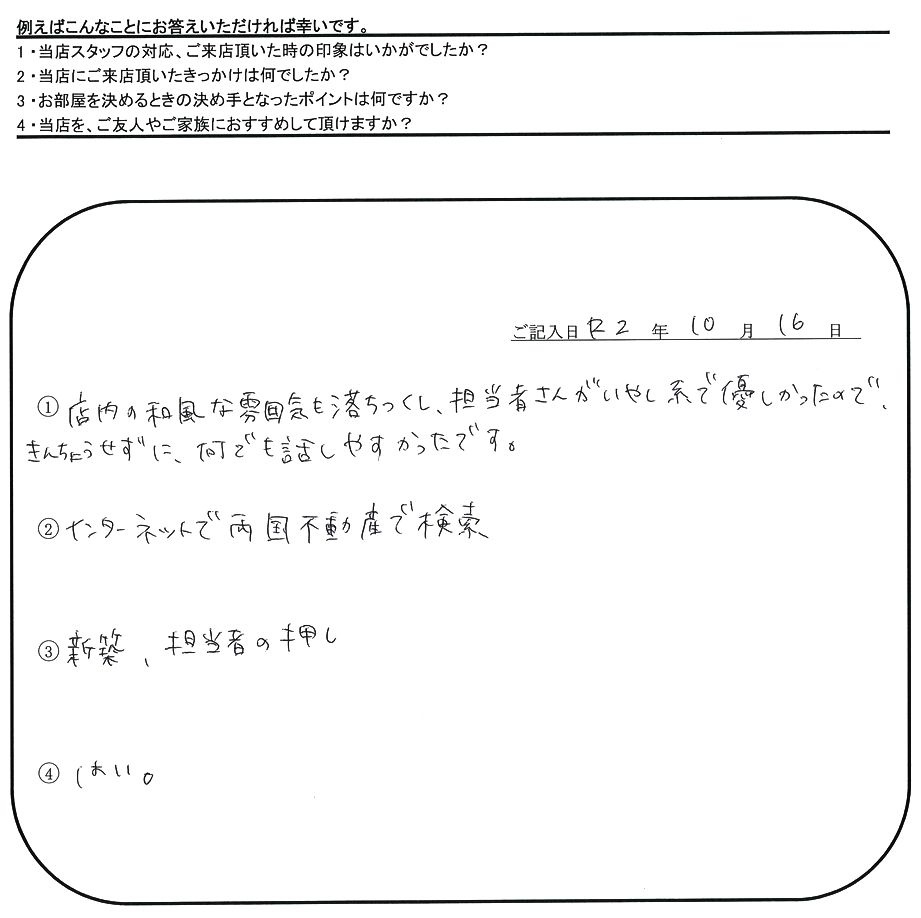 例えばこんなことにお答えいただければ幸いです。
1・当店スタッフの対応、ご来店頂いた時の印象はいかがでしたか？
2・当店にご来店頂いたきっかけは何でしたか？
3・お部屋を決めるときの決め手となったポイントは何ですか？
4・当店を、ご友人やご家族におすすめして頂けますか？
ご記入日 R2 年 10 月 16 日
① 店内の和風な雰囲気も落ちつくし、担当者さんがいやし系で優しかったので、
きんちょうせずに、何でも話しやすかったです。
② インターネットで両国不動産で検索
③ 新築、担当者の押し
④ はい。